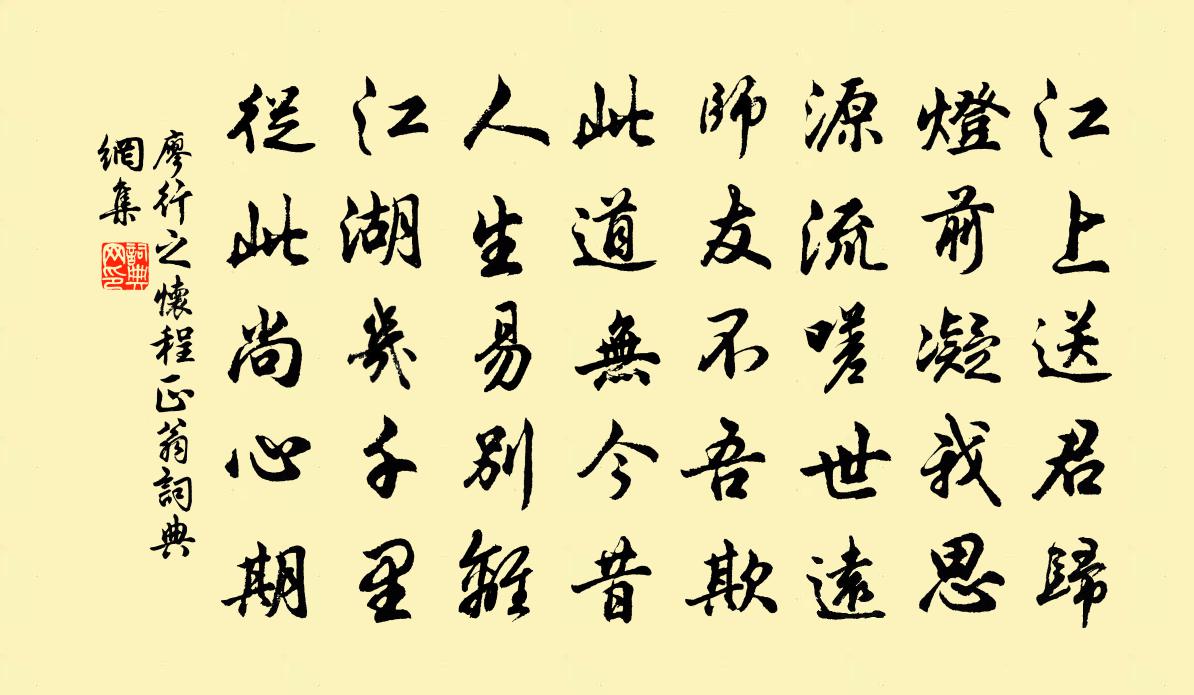 江上送君歸
燈前凝我思
源流嗟世遠
師友不吾欺
此道無今昔
人生易別離
江湖幾千里
從此尚心期
廖行之懷程正翁詞典
網集
詞典
网印